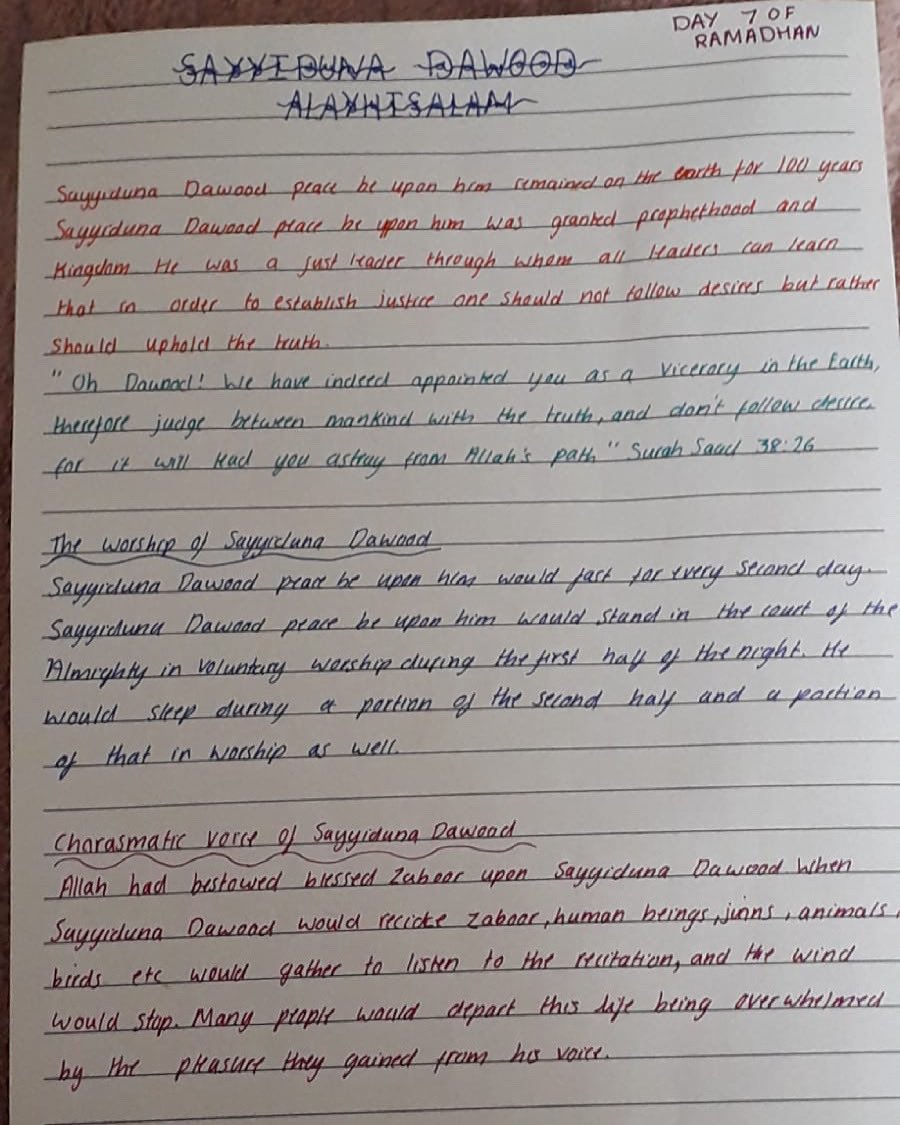 DAY 7 OF
RAMADHAN
SAYYIDUNA DAWOOD
ALAYHISALAM
Sayyiduna Dawood peace be upon him remained on the earth for 100 years
Sayyiduna Dawood peace be upon him was granted prophethood and
Kingdom He was a just leader through whom all leaders can learn
that in order to establish justice one should not follow desires but rather
should uphold the truth.
"Oh Dawood! We have indeed appointed you as a vicerory in the Earth,
therefore judge between mankind with the truth, and don't follow desire.
for it will lead you astray from Allah's path" Surah Saad 38:26
The worship of Sayyiduna Dawood
Sayyiduna Dawood peace be upon him would fast for every second day.
Sayyiduna Dawood peace be upon him would stand in the court of the
Almighty in voluntary worship during the first half of the night. He
would sleep during a portion of the second half and a portion
of that in worship as well.
Charasmatic voice of Sayyiduna Dawood
Allah had bestowed blessed Zaboor upon Sayyiduna Dawood When
Sayyiduna Dawood would recicte Zaboor, human beings, jinns, animals,
birds etc would gather to listen to the recitation, and the wind
would stop. Many people would depart this life being overwhelmed
by the pleasure they gained from his voice.